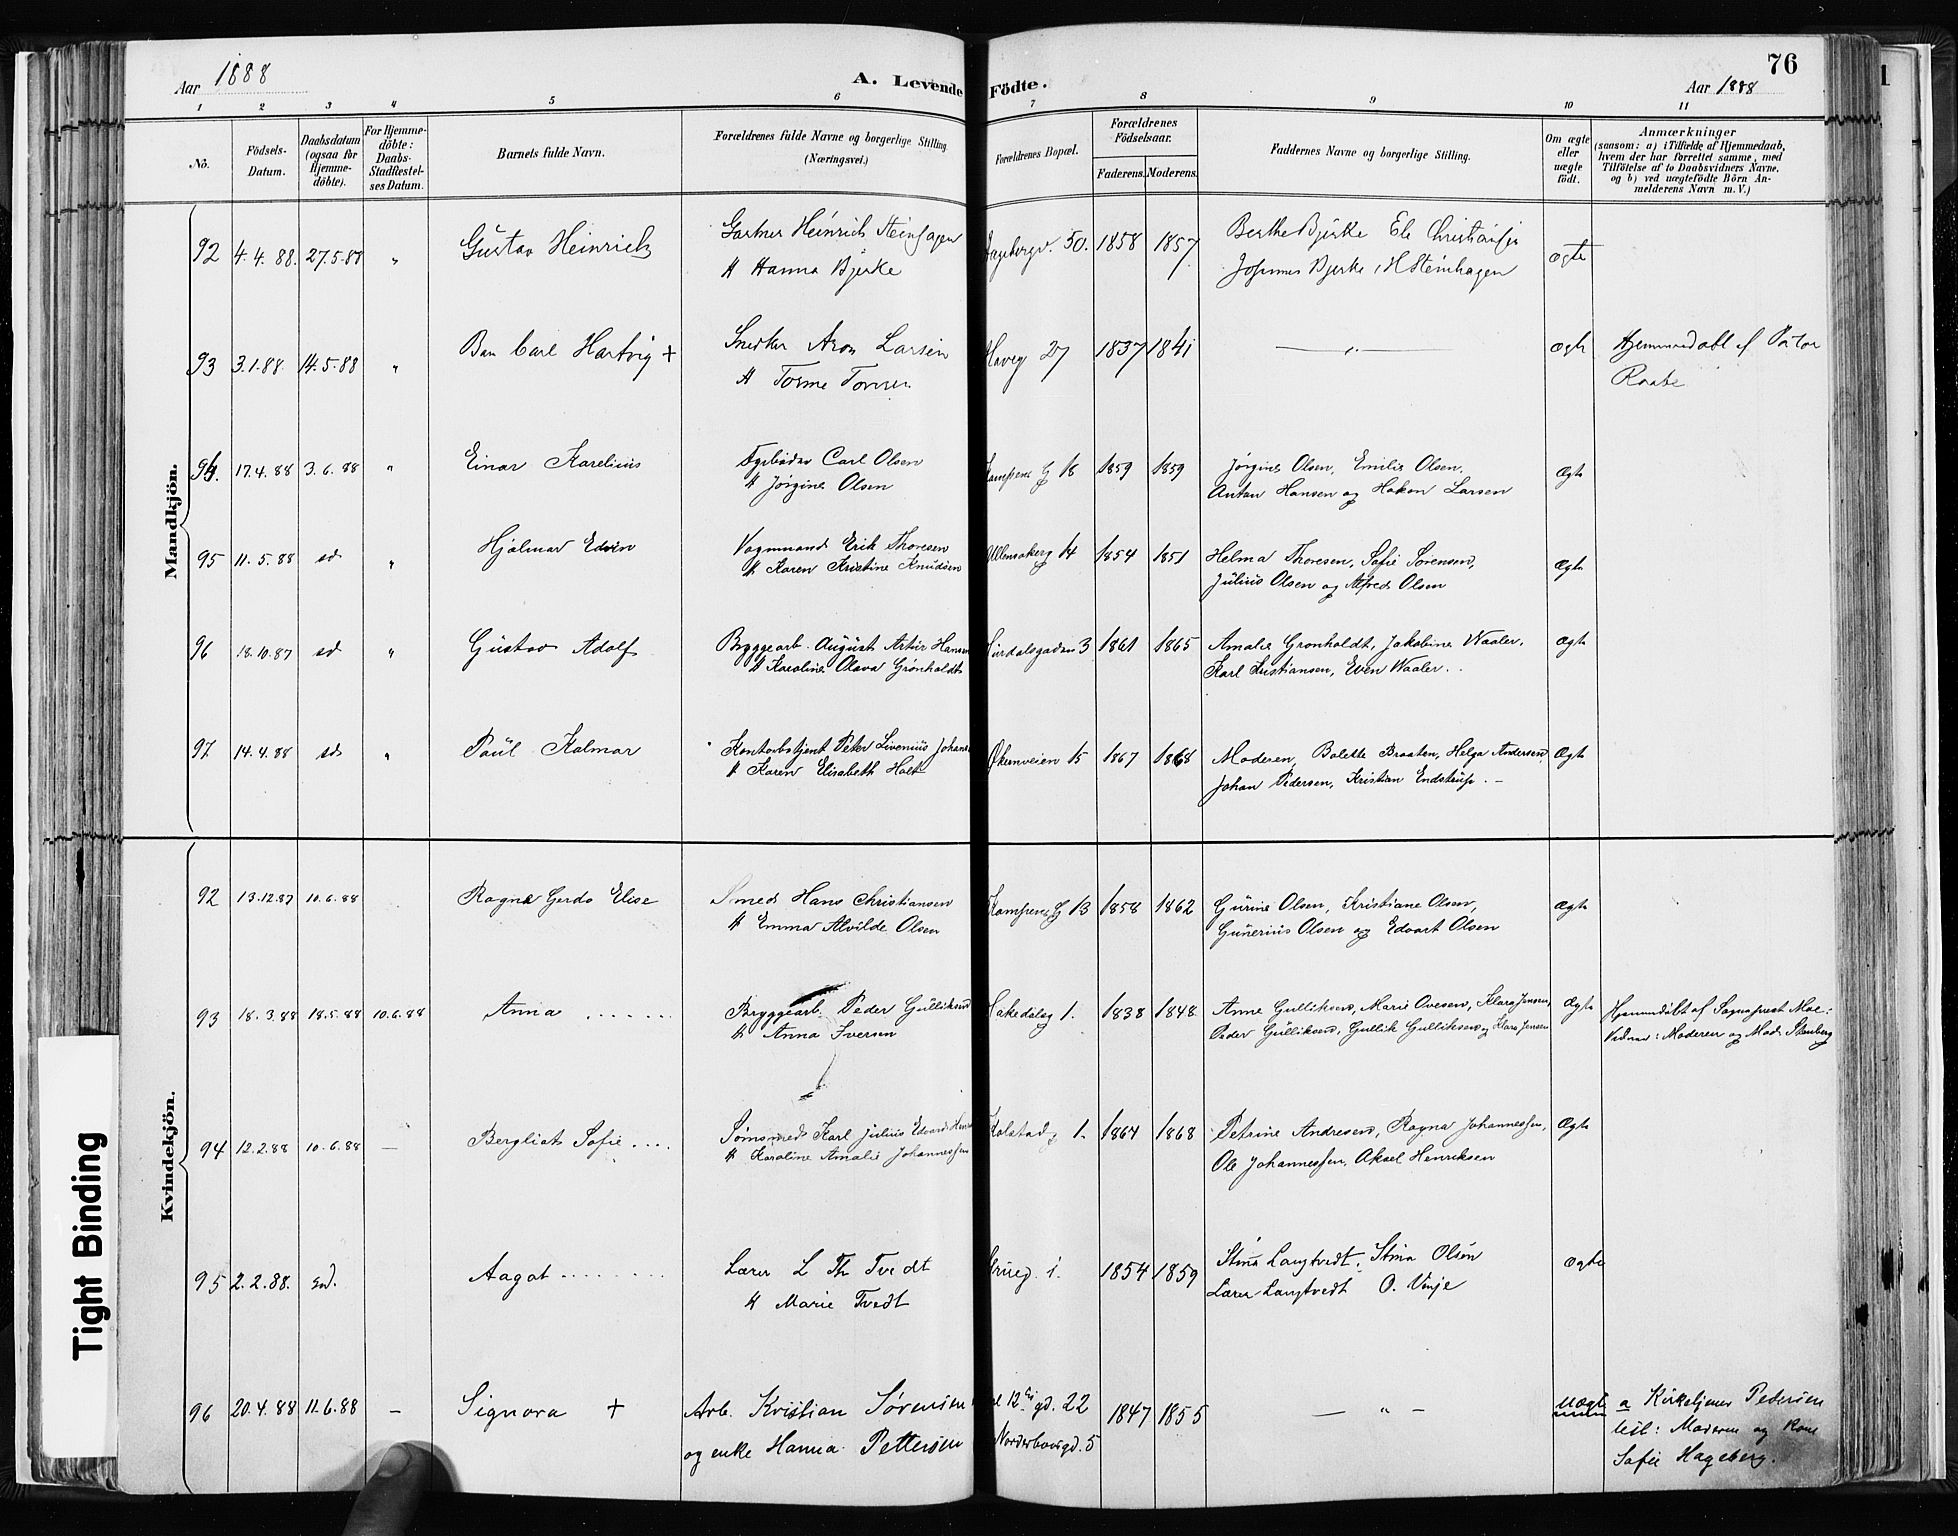 Aar 1888
A. Levende Födte.
76
Aar 1888
1 2 3 4 5 6 7 8 9 10 11
No.
Födsels-Datum.
Daabsdatum (ogsaa for Hjemme-döbte).
For Hjemme-döbte: Daabs-Stadfæstel-ses Datum.
Barnets fulde Navn.
Forældrenes fulde Navne og borgerlige Stilling. (Næringsvei.)
Forældrenes Bopæl.
Forældrenes Födselsaar.
Faderens. Moderens.
Faddernes Navne og borgerlige Stilling.
Om ægte eller uægte födt.
Anmærkninger
(saasom: a) i Tilfælde af Hjemmedaab,
hvem der har forrettet samme, med
Tilföielse af to Daabsvidners Navne,
og b) ved uægtefödte Börn An-
melderens Navn m. V.)
Mandkjön.
92 4.4.88. 27.5.88 " Gustav Heinrich Gartner Heinrich Steinhagen 50. 1858 1857 Berthe Bjerke Ele Christiansen ægte
H Hanna Bjerke Johannes Bjerke, H Steinhagen
93 3.1.88. 14.5.88 " Carl Hartvig + Snedker Aron Larsen 27 1837 1841 — " — ægte Hjemmedøbt af Pastor
H Raabe
94. 17.4.88 3.6.88 " Einar Karelius Carl Olsen Kampens G 18 1859 1859 Jørgine Olsen, Emilie Olsen, Ægte
H Jørgine Olsen Anton Hansen og Hakon Larsen
95 11.5.88 sd " Hjalmar Edvin Vognmand Erik Thoresen Ullensakerg 14 1854 1851 Helma Thoresen, Sofie Sørensen, Ægte
H Karen Kristine Knudsen Julius Olsen og Alfred Olsen
96 18.10.87 sd " Gustav Adolf Byggearb. August Artur Hansen Hurdalsgaden 3 1861 1865 Amalie Grønholdt, Jakobine Waaler, Ægte
H Karoline Olava Grønholdt Karl Kristiansen, Even Waaler.
97 14.4.88 sd " Paul Kalmar Kontorbetjent Peter Livenius Johans Økernveien 15 1867 1868 Moderen, Bolette Braaten, Helga Andersen, Ægte
H Karen Elisabeth Holt Johan Pedersen, Kristian Endstrup. —
Kvindekjön.
92 13.12.87 10.6.88 Ragna Gerda Elise Smed Hans Christiansen Kampens G 13 1858 1862 Gurine Olsen, Kristiane Olsen, Ægte
H Emma Alvilde Olsen Gunerius Olsen og Edvart Olsen
93 18.3.88 18.5.88 10.6.88 Anna Bryggearb. Peder Gulliksen Hakedalsg 1. 1838 1848 Anne Gulliksen, Marie Ovesen, Klara Jensen, Ægte Hjemmedøbt af Sogneprest Moe:
H Anna Iversen Peder Gulliksen, Gullik Gulliksen og Klaus Jensen Vidner: Moderen og Mad. Stenberg
94 12.2.88 10.6.88 — Bergliot Sofie Sømsmed Karl Julius Edvard Kolstadg 1. 1864 1868 Petrine Andresen, Ragna Johannessen, Ægte
H Karoline Amalie Johannessen Ole Johannessen, Aksel Henriksen
95 2.2.88. sd. Aagot Lærer L Th Tvedt 1. 1854 1859 Stina Langtvedt, Stina Olsen Ægte
H Marie Tvedt Lærer Langtvedt O. Vinje
96 20.4.88 11.6.88 — Signora + Arb. Kristian Sørensen gd. 22 1847 1855 — " — uægte a Kirketjener Pedersen
og enke Hanna Pettersen gd. 5 test: Moderen og Kone
Sofie Hageberg.
Tight Binding